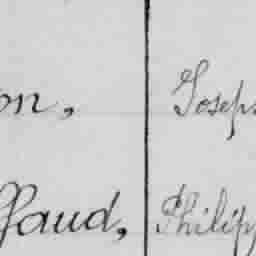 on, Joseph
ffaud, Philipp